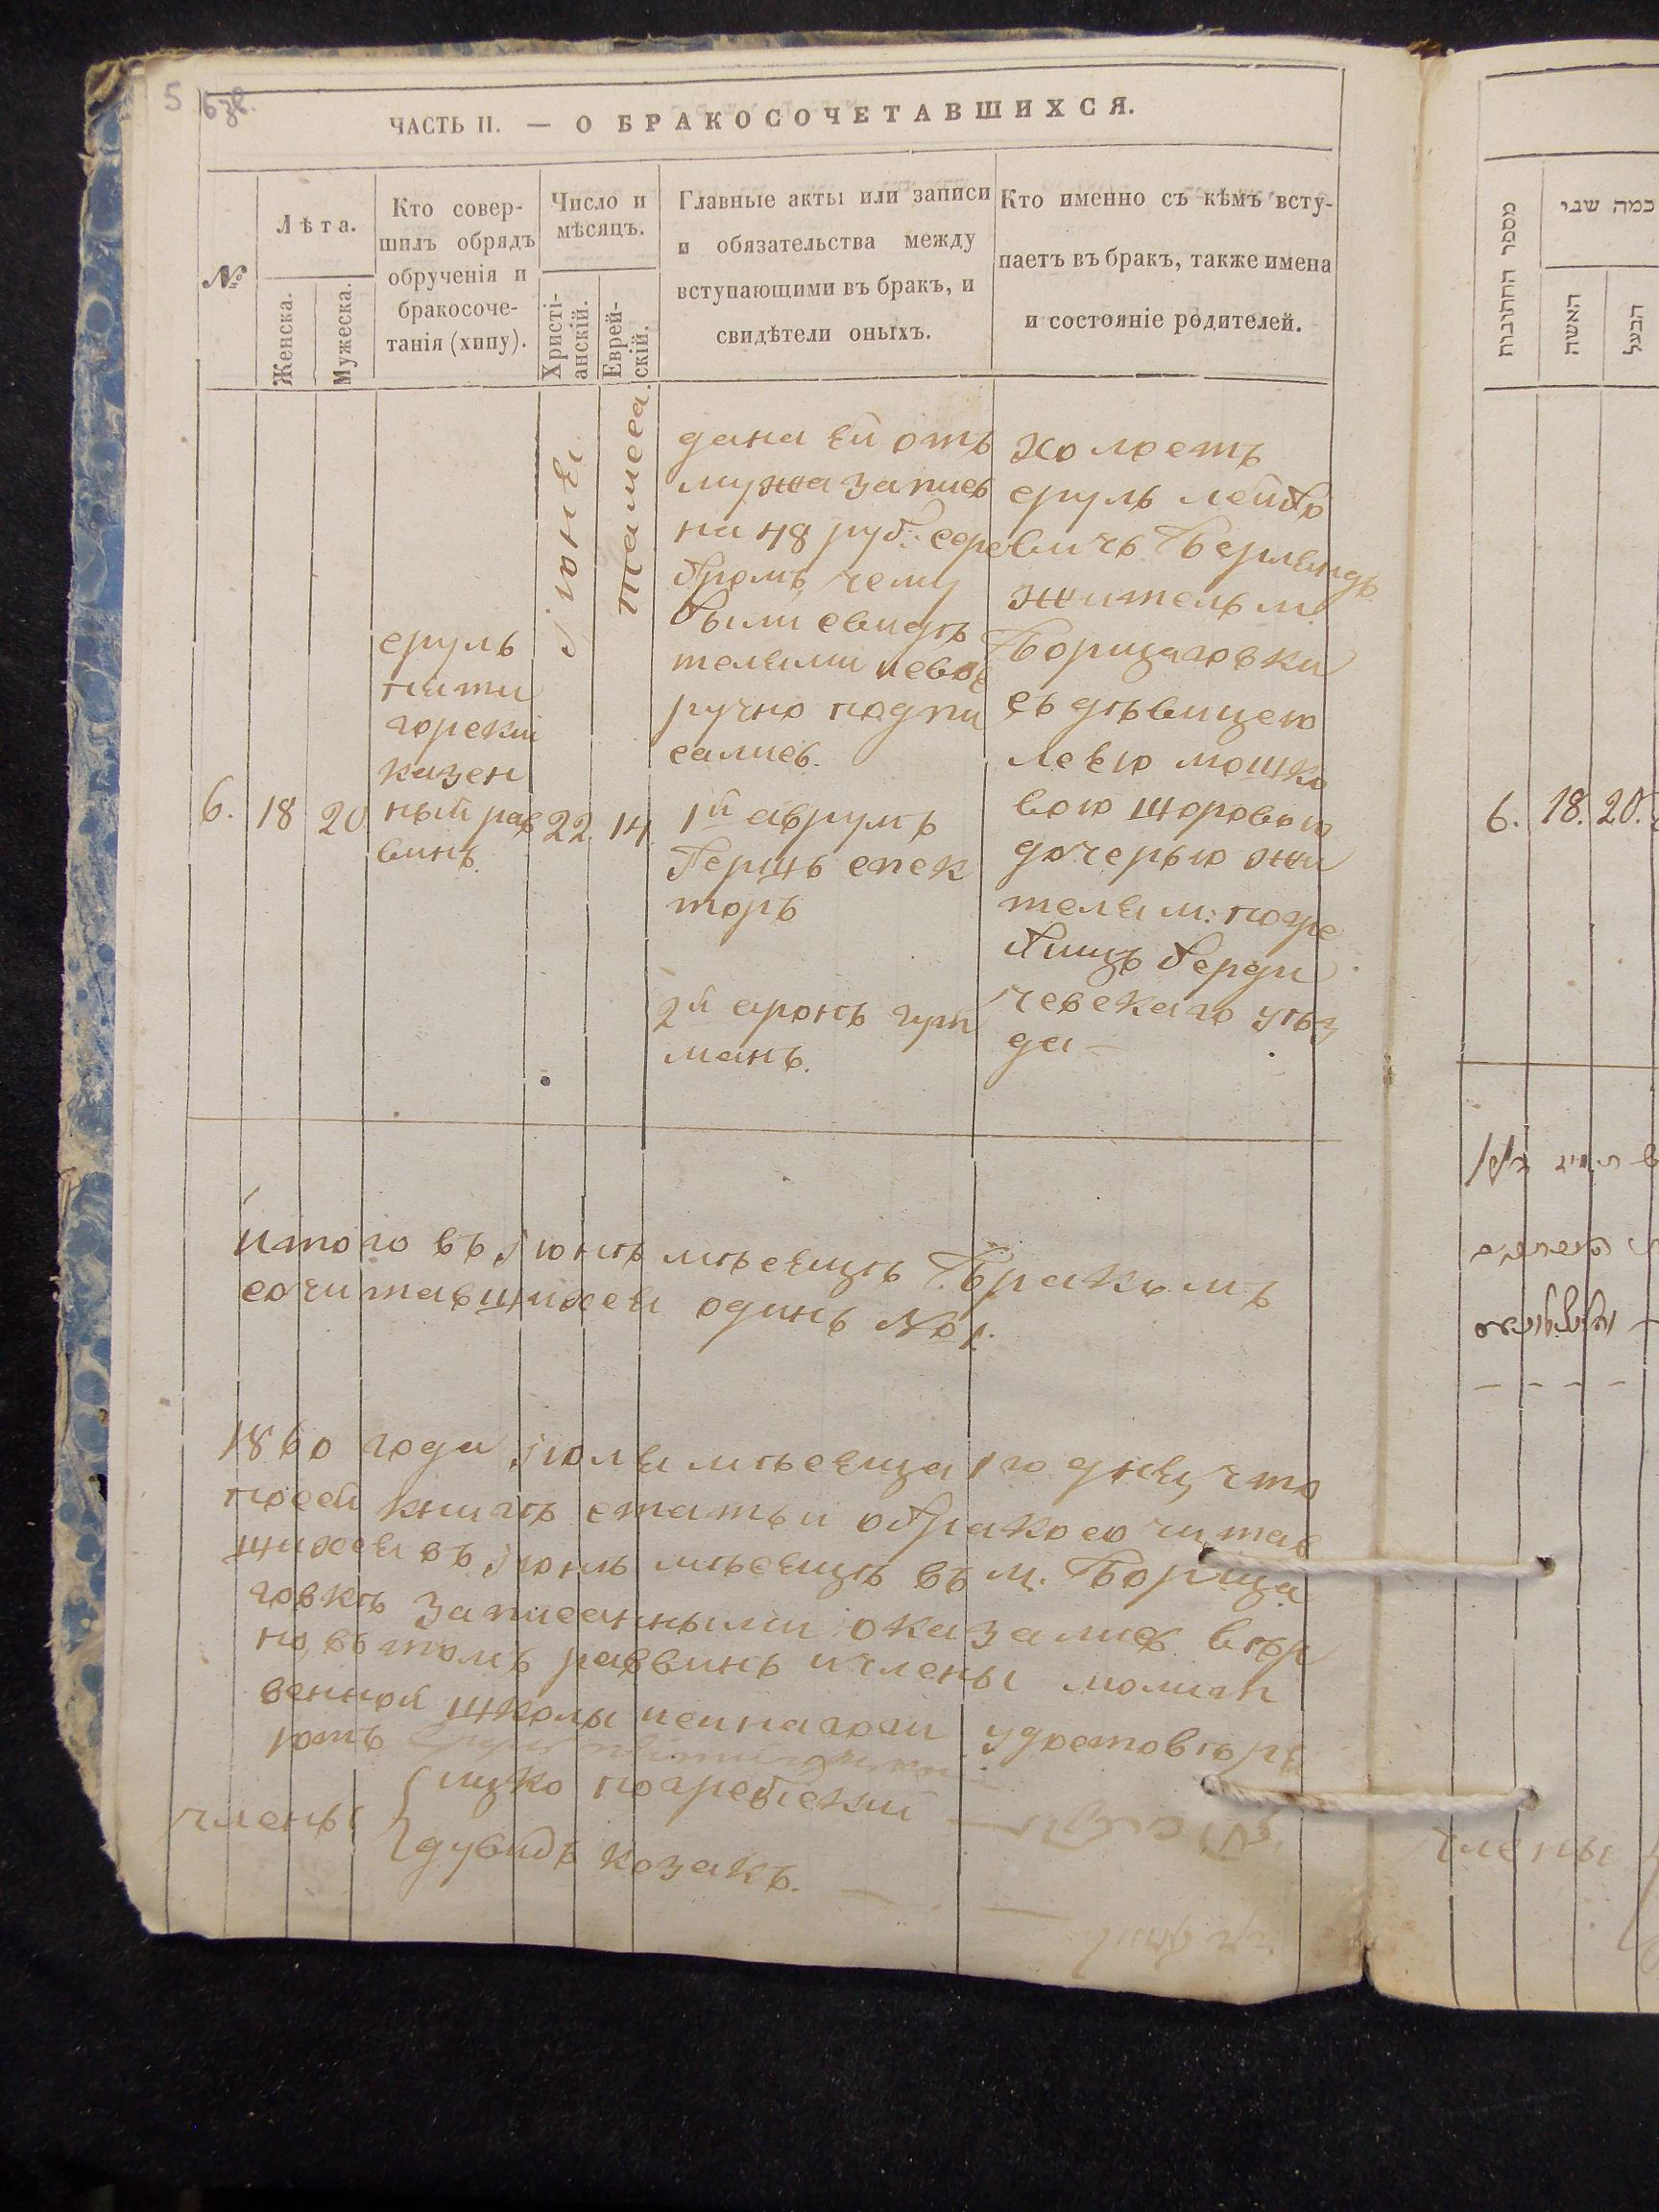 5 6зв.
ЧАСТЬ II. — О БРАКОСОЧЕТАВШИХСЯ.
№
Лѣта.
Женска.
Мужеска.
Кто совер-
шилъ обрядъ
обрученія и
бракосоче-
танія (хипу).
Число и
мѣсяцъ.
Христі-
анскій.
Еврей-
скій.
Главные акты или записи
и обязательства между
вступающими въ бракъ, и
свидѣтели оныхъ.
Кто именно съ кѣмъ всту-
паетъ въ бракъ, также имена
и состояніе родителей.
6.
18
20
сруль
пяти
горскій
казен
ный рав
винъ.
Іюня
22.
Тамеса
14
дана ей отъ
мужа запись
на 48 руб: сере
бромъ, чему
были свидѣ
телями и свое
ручно подпи
сались.
1й аврумъ
Герщъ спек
торъ
2й аронъ гут
манъ.
холостъ
сруль лейбо
вичъ
житель м.
Борщаговки
съ дѣвицею
лею мошко
вою
дочерью жи
теля м: погре
бищъ берди
чевскаго уѣз
да —
итого въ Іюнѣ мѣсяцѣ Бракомъ
сочитавшихся одинъ № 1.
1860 года Іюля мѣсяца 1го дня, что
по сей книгѣ статьи о бракосочитав
шихся въ Іюнѣ мѣсяцѣ въ м. Борща
говкѣ записанными оказались вѣр
но, въ томъ раввинъ и члены молит
венной школы и синагоги удостовѣря
ютъ
члены
ицко погребіский
дувидъ козакъ.
מספר החתיבות
כמה שבי
האשה
הבעל
6.
18.
20.
члены